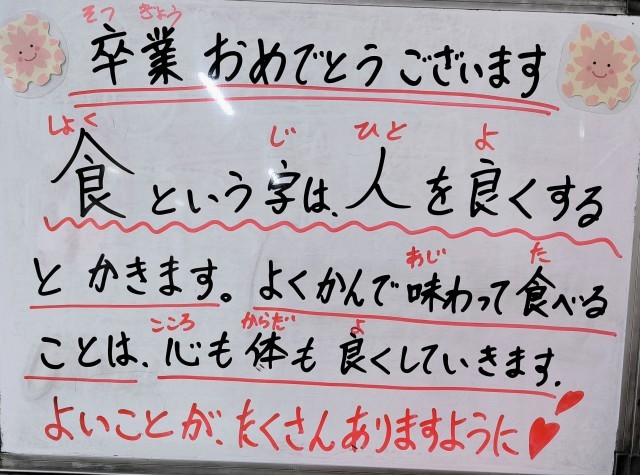 そつ ぎょう
卒業 おめでとうございます
しょく じ ひと よ
食 という字は、人を良くする
あじ た
と かきます。よくかんで味わって食べる
こころ からだ よ
ことは、心も体も良くしていきます.
よいことが、たくさんありますように